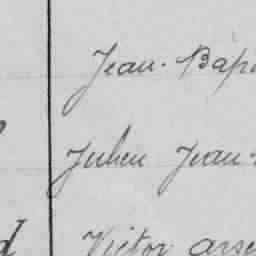 Jean-Bap
Julien Jean-
d Victor arse